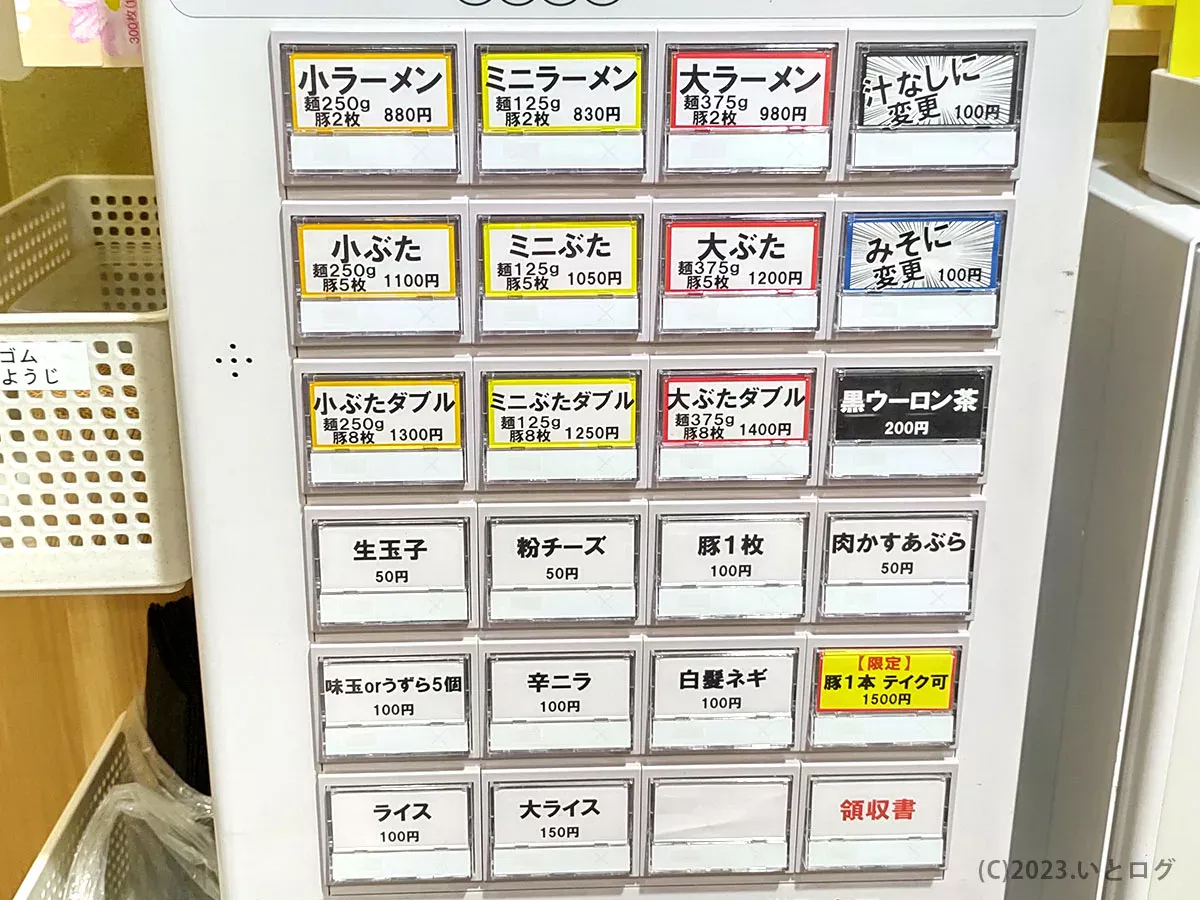 300枚(1
小ラーメン
麺250g
豚2枚 880円
ミニラーメン
麺125g
豚2枚 830円
大ラーメン
麺375g
豚2枚 980円
汁なしに
変更 100円
小ぶた
麺250g
豚5枚 1100円
ミニぶた
麺125g
豚5枚 1050円
大ぶた
麺375g
豚5枚 1200円
みそに
変更 100円
ゴム
ようじ
小ぶたダブル
麺250g
豚8枚 1300円
ミニぶたダブル
麺125g
豚8枚 1250円
大ぶたダブル
麺375g
豚8枚 1400円
黒ウーロン茶
200円
生玉子
50円
粉チーズ
50円
豚1枚
100円
肉かすあぶら
50円
味玉orうずら5個
100円
辛ニラ
100円
白髪ネギ
100円
【限定】
豚1本 テイク可
1500円
ライス
100円
大ライス
150円
領収書
(C)2023.いとログ